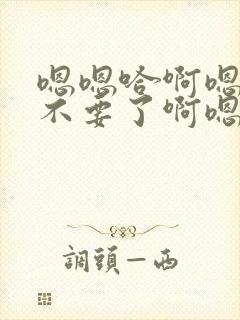 嗯嗯哈啊嗯
不要了啊嗯
調頭一西